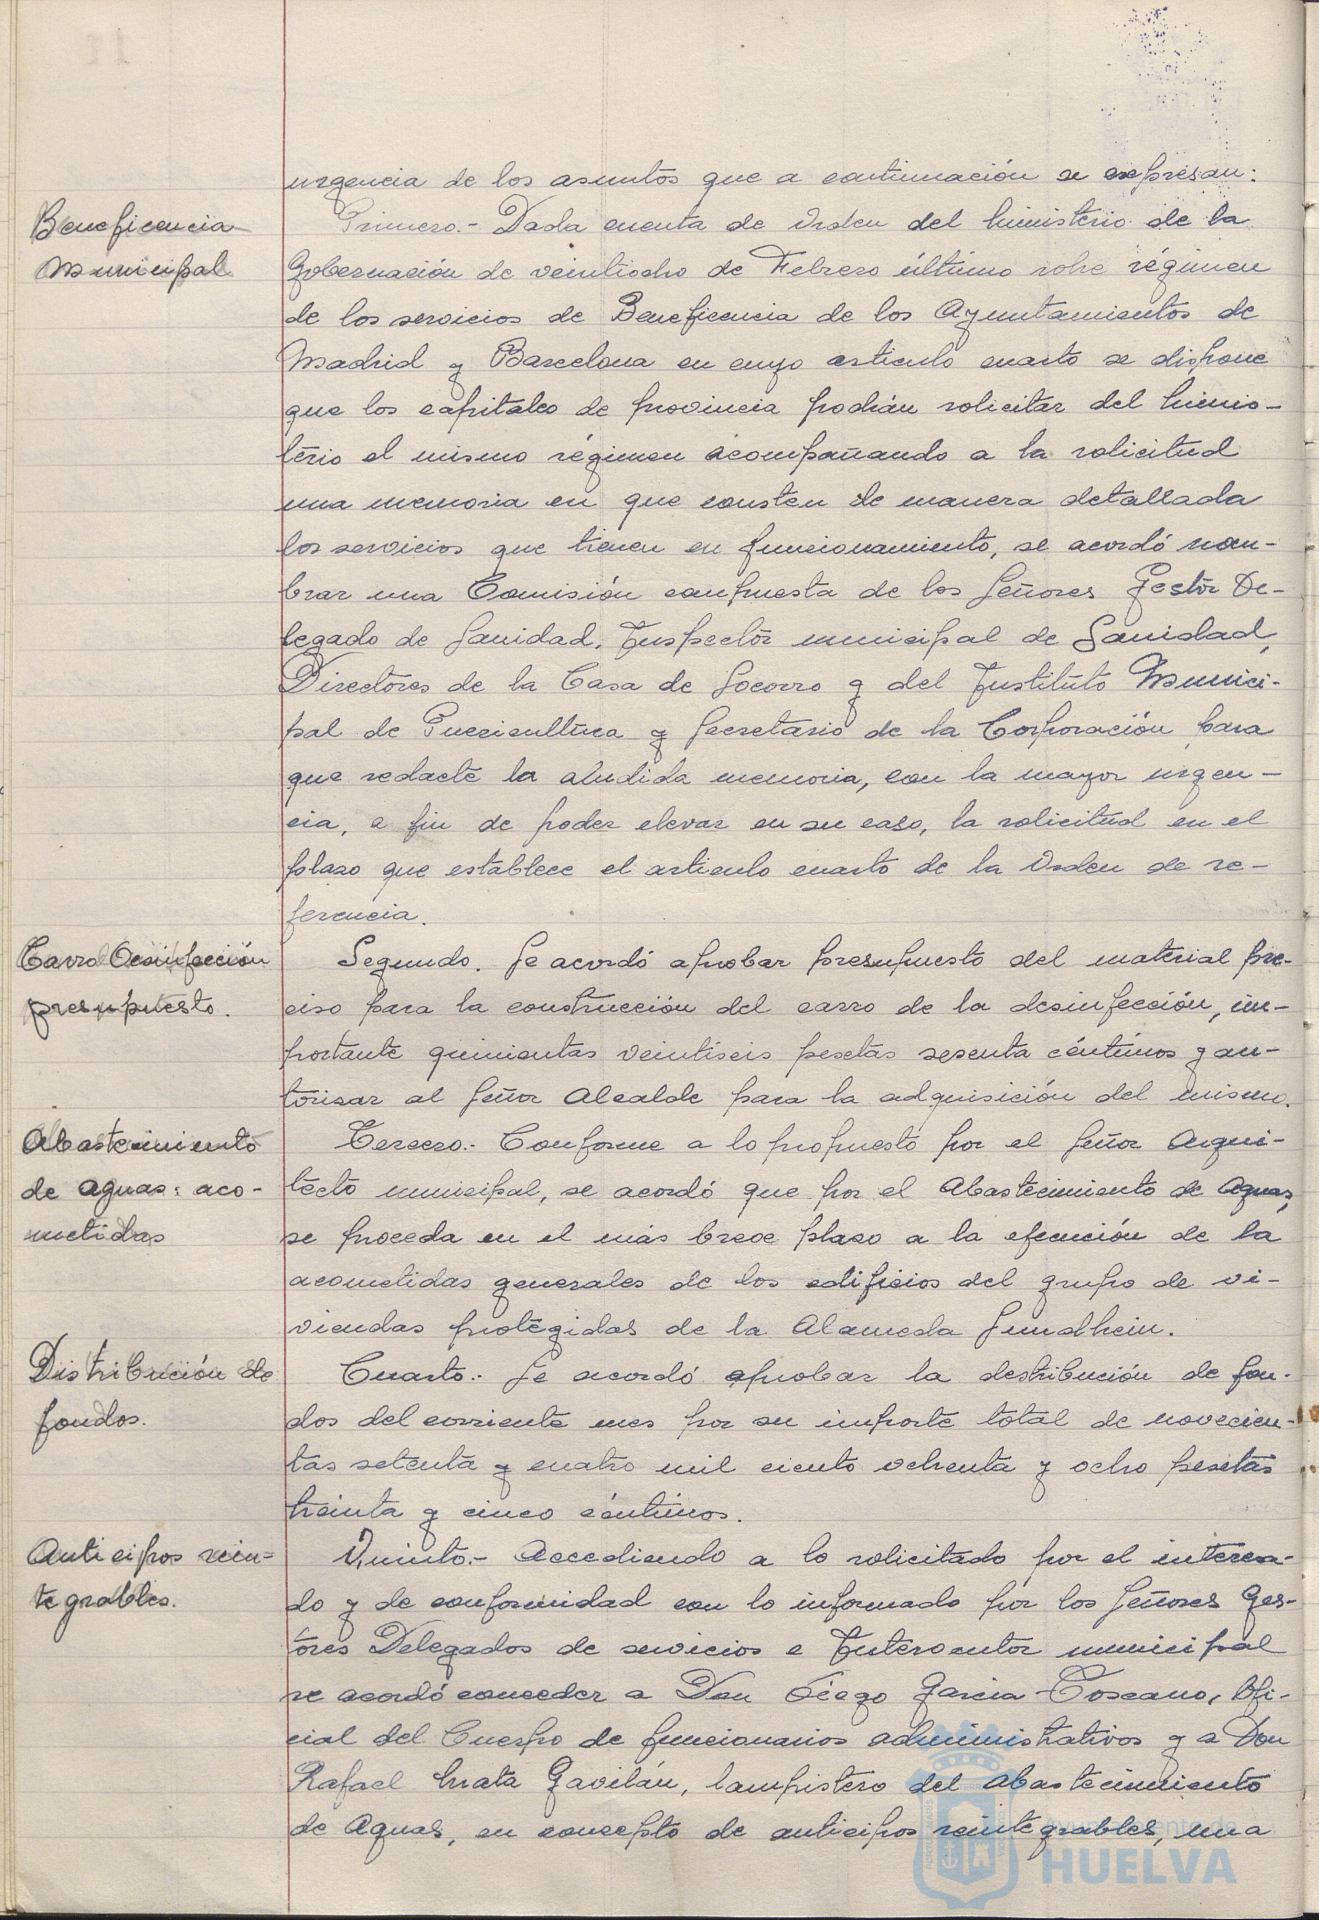 urgencia de los asuntos que a continuación se expresan:
Beneficencia
Municipal
Primero.- Dada cuenta de Orden del Ministerio de la
Gobernación de veintiocho de Febrero último sobre régimen
de los servicios de Beneficencia de los Ayuntamientos de
Madrid y Barcelona en cuyo articulo cuarto se dispone
que los capitales de provincia podrán solicitar del Minis-
terio el mismo régimen acompañando a la solicitud
una memoria en que consten de manera detallada
los servicios que tienen en funcionamiento, se acordó nom-
brar una Comisión compuesta de los Señores Gestor De-
legado de Sanidad, Inspector municipal de Sanidad,
Directores de la Casa de Socorro y del Instituto Munici-
pal de Puericultura y Secretario de la Corporación para
que redacte la aludida memoria, con la mayor urgen-
cia, a fin de poder elevar en su caso, la solicitud en el
plazo que establece el articulo cuarto de la Orden de re-
ferencia.
Carro Desinfección
presupuesto.
Segundo. Se acordó aprobar presupuesto del material pre-
ciso para la construcción del carro de la desinfección, im-
portante quinientas veintiseis pesetas sesenta céntimos y au-
torizar al Señor Alcalde para la adquisición del mismo.
Abastecimiento
de aguas: aco-
metidas
Tercero.- Conforme a lo propuesto por el Señor Arqui-
tecto municipal, se acordó que por el Abastecimiento de Aguas,
se proceda en el más breve plazo a la ejecución de la
acometidas generales de los edificios del grupo de vi-
viendas protegidas de la Alameda Sundhein.
Distribución de
fondos.
Cuarto.- Se acordó aprobar la destribución de fon-
dos del corriente mes por su importe total de novecien-
tas setenta y cuatro mil ciento ochenta y ocho pesetas
treinta y cinco céntimos.
Anticipos rein-
tegrables.
Quinto.- Accediendo a lo solicitado por el interesa-
do y de conformidad con lo informado por los Señores Ges-
tores Delegados de servicios e Interventor municipal
se acordó conceder a Don Diego Garcia Toscano, Ofi-
cial del Cuerpo de funcionarios administrativos y a Don
Rafael Mata Gavilán, lampistero del Abastecimiento
de Aguas, en concepto de anticipos reintegrables, una
Ayuntamiento de
HUELVA